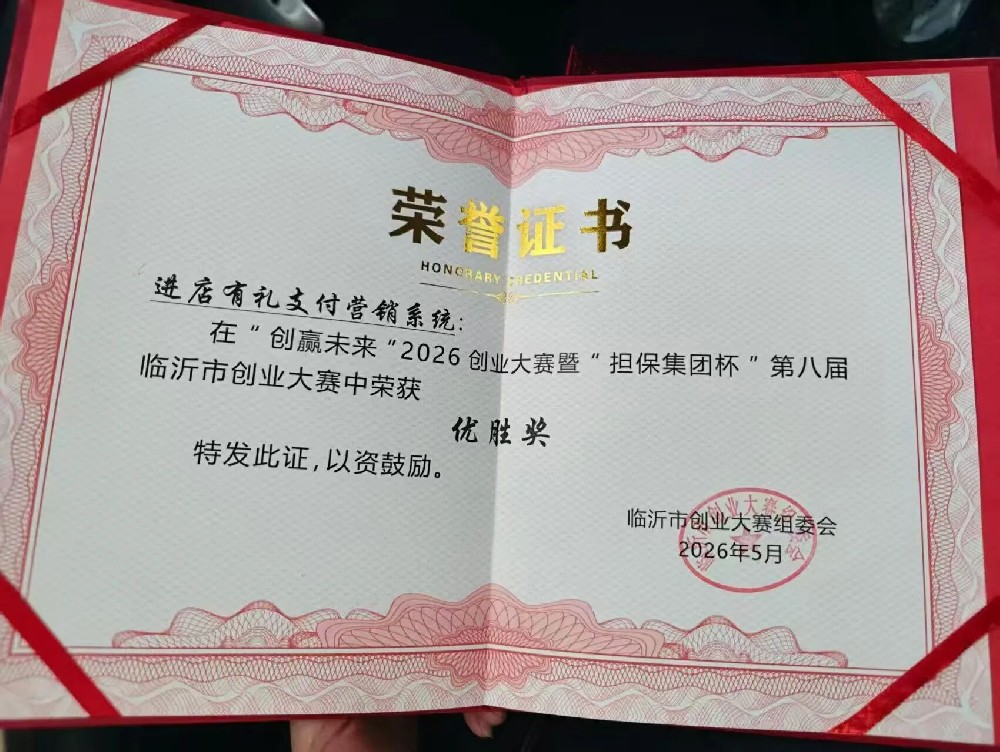 荣誉证书
HONORARY CREDENTIAL
进店有礼支付营销系统:
在“创赢未来“2026创业大赛暨“担保集团杯”第八届
临沂市创业大赛中荣获
优胜奖
特发此证,以资鼓励。
临沂市创业大赛组委会
2026年5月